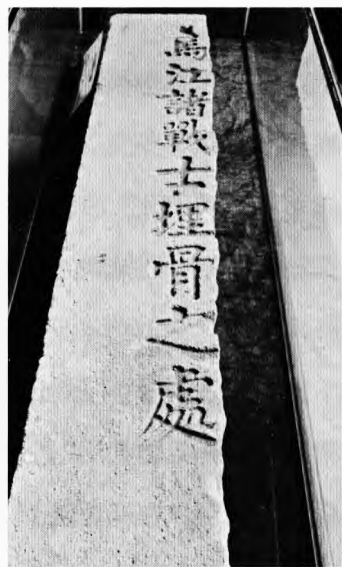 烏江諸戰士埋骨之處